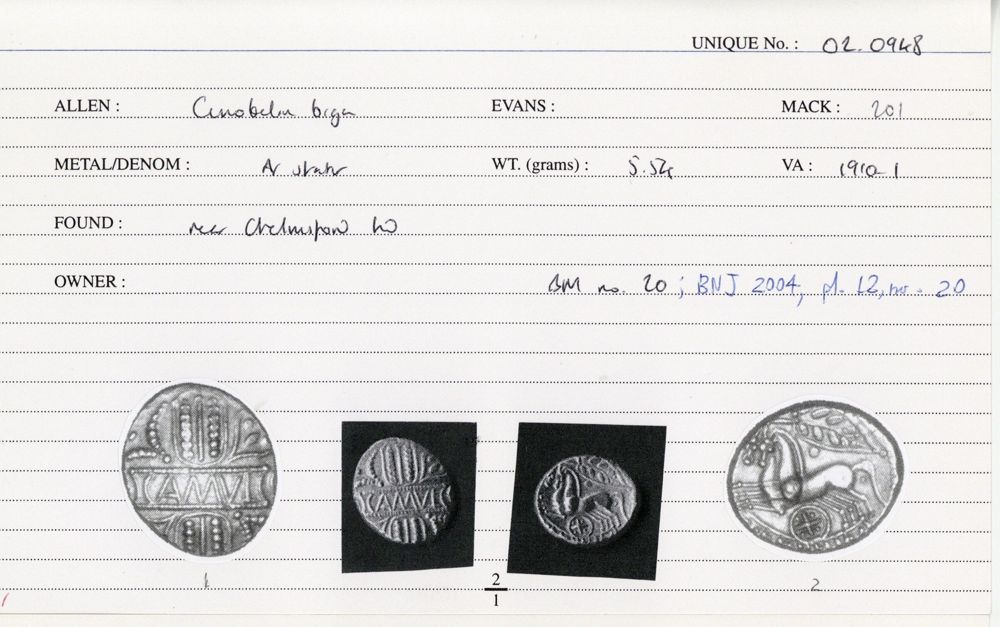 UNIQUE No. : 02.0948
ALLEN : Cunobelin biga EVANS : MACK : 201
METAL/DENOM : AV stater WT. (grams) : 5.54 VA : 1910-1
FOUND : near Chelmsford
OWNER : BM no. 20 ; BNJ 2004, pl. 12, no. 20
CAMVL
CAMVL
1
2
1
2